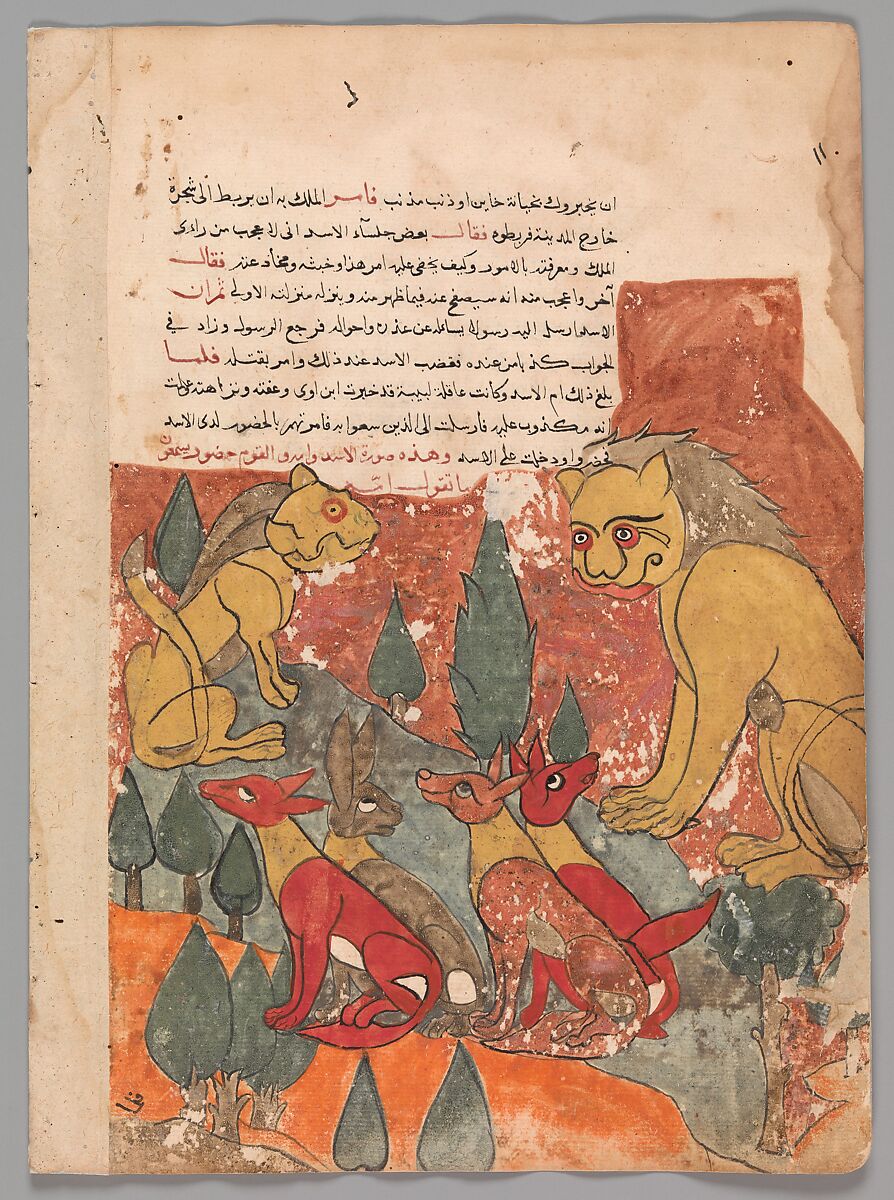 ان يخبروك بخيانة خاين او ذنب مذنب فامر الملك به ان يربط الى شجرة
خارج المدينة فربطوه فقال بعض جلسآء الاسد انى لا عجب من راءى
الملك ومعرفته بالامور وكيف يخفى عليه امر هذا وخبثه ومخادعته فقال
آخر واعجب منه انه سيصفح عنه فيما ظهر منه وينزله منزلته الاولى ثم ان
الاسد ارسل اليه رسولا يسائله عن عذره واحواله فرجع الرسول وزاد فى
الجواب كذبا من عنده فغضب الاسد عند ذلك وامر بقتله فلما
بلغ ذلك ام الاسد وكانت عاقلة لبيبة قد خبرت ابن اوى وعفته ونزاهته وعلمت
انه مكذوب عليه فارسلت الى الذين سعوا به فامرتهم بالحضور لدى الاسد
فحضروا ودخلت على الاسد وهذه صورة الاسد وامه والقوم حضور يسمعون
ما تقول امه
١١